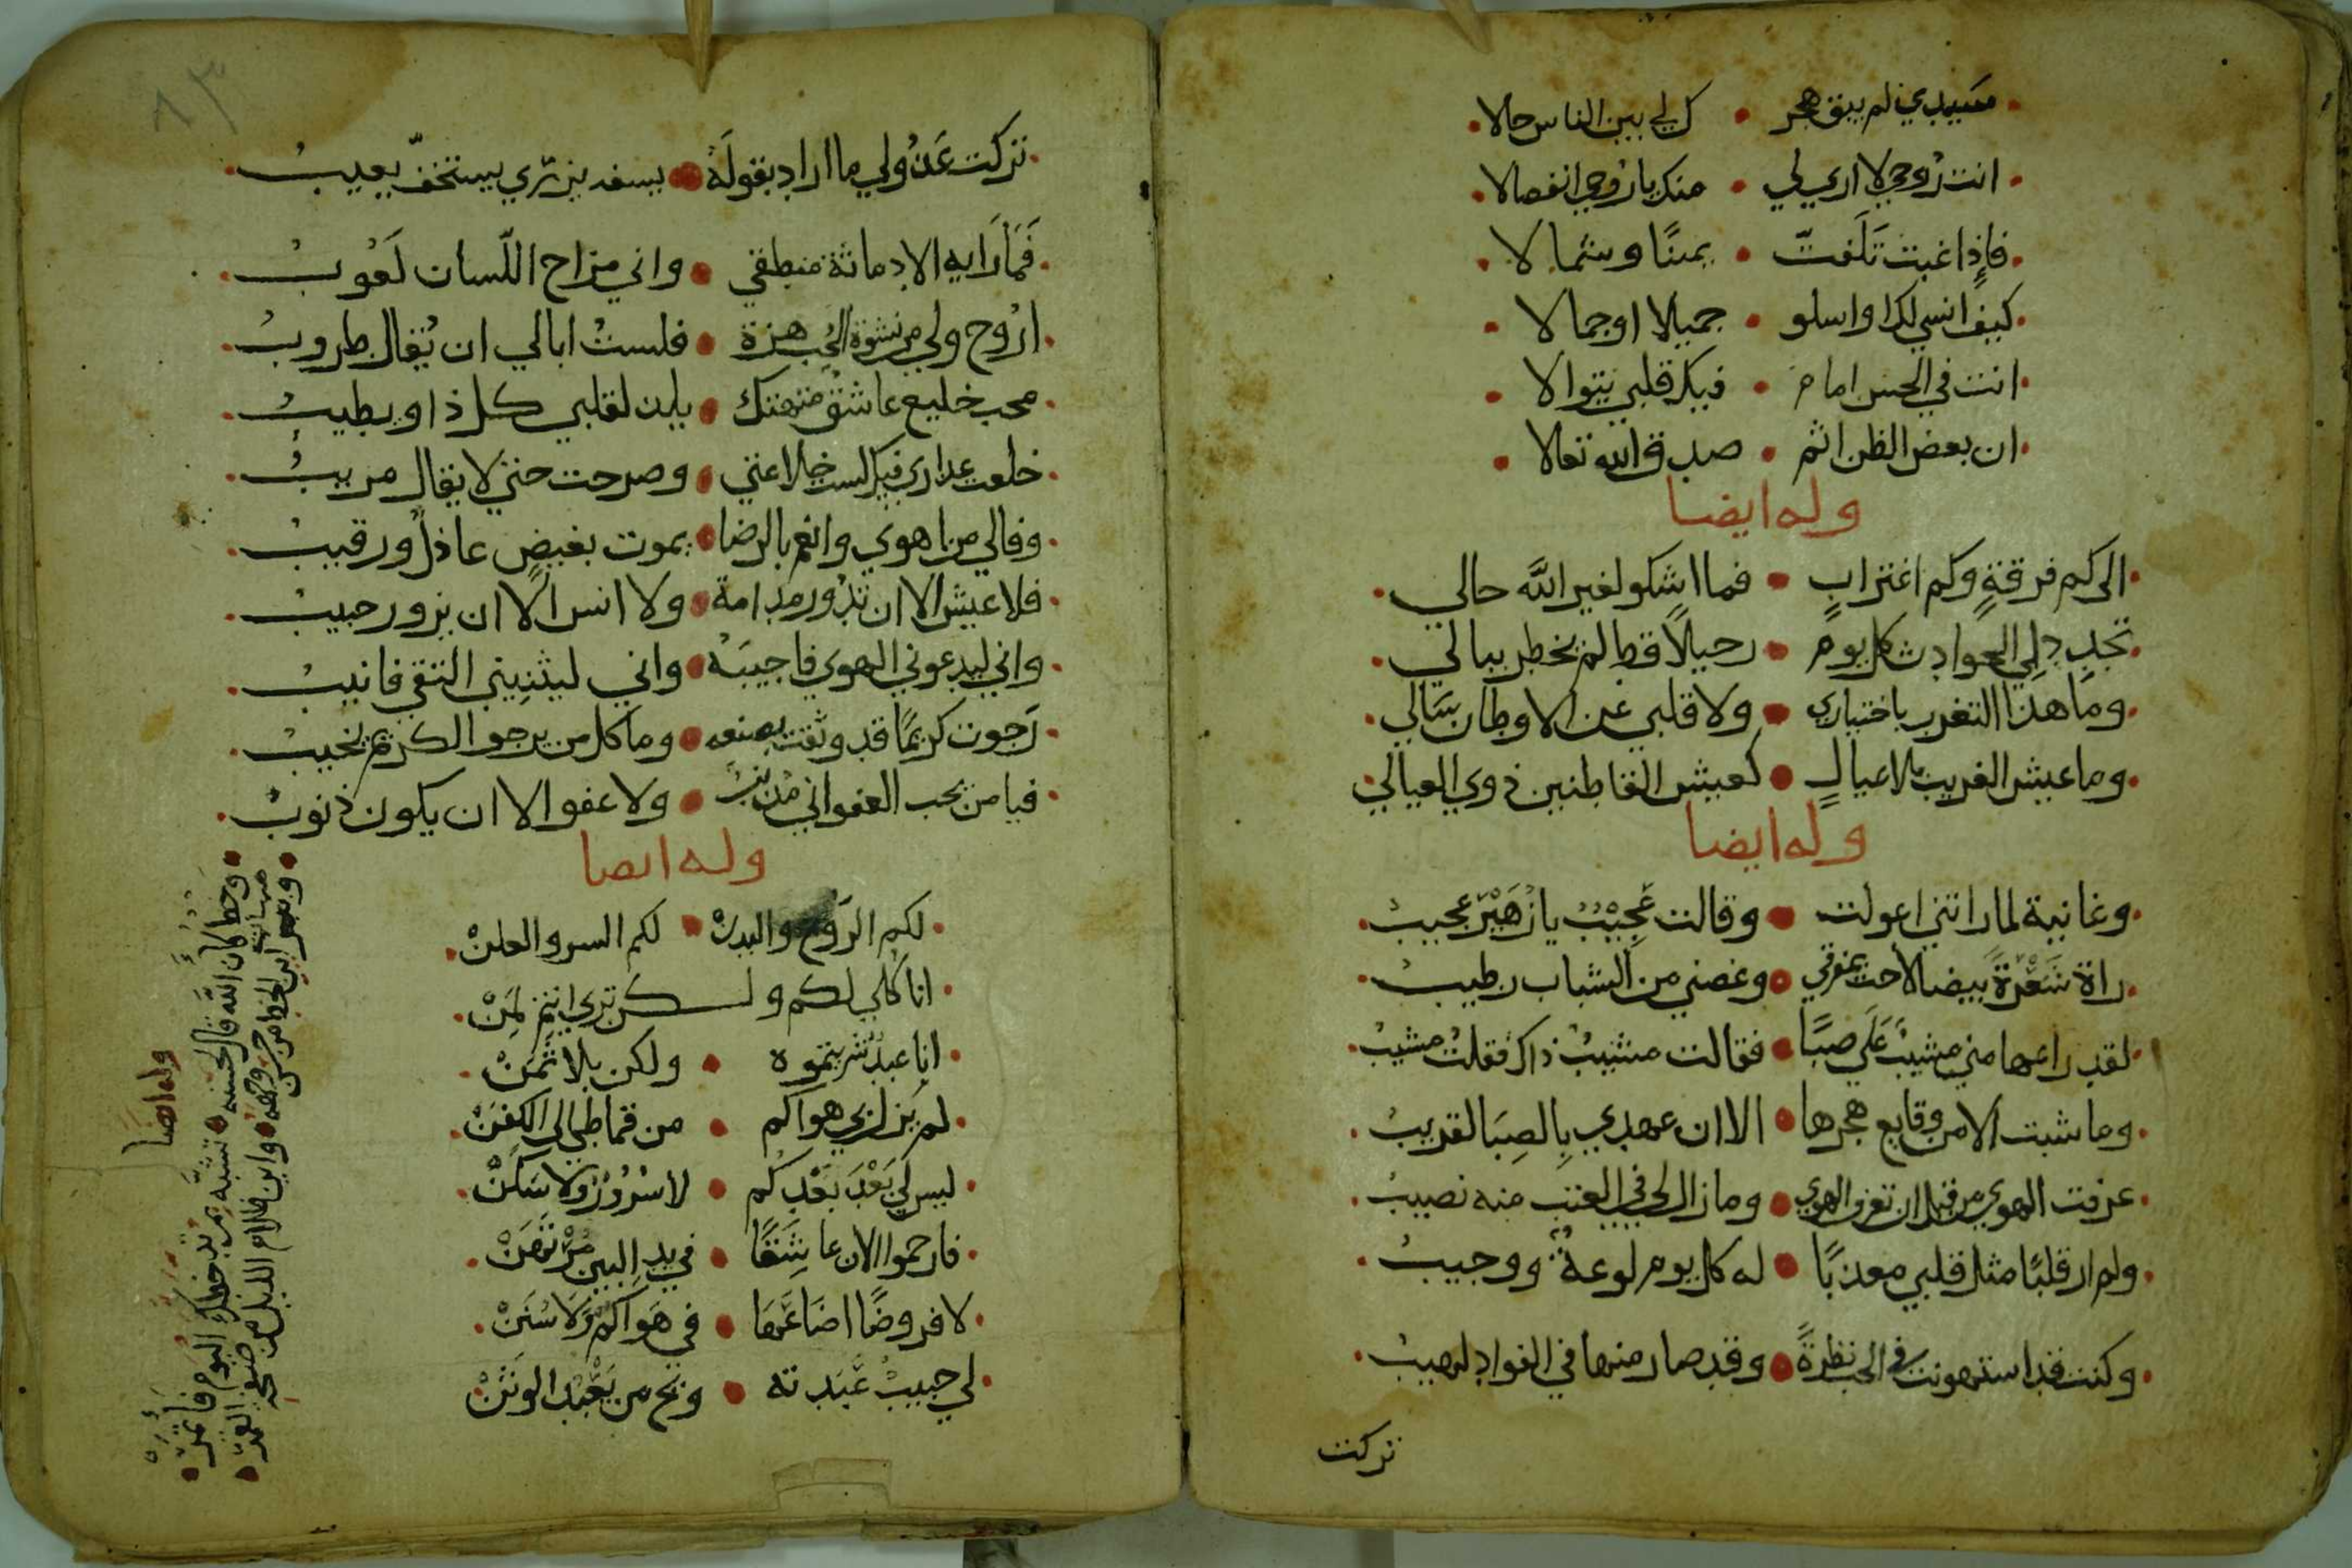 سيدي لم يبق هجر • ك لي بين الناس حالا
انت روحي لا اري لي • منك يا روحي انفصالا
فاذا غبت تلفت • يمينا وشمالا
كيف انسي لك او اسلو • جميلا او جمالا
انت في الحسن امام • فيك قلبي يتوالا
ان بعض الظن اثم • صدق الله تعالا
وله ايضا
الى كم فرقةٍ وكم اغترابٍ • فما اشكو لغير الله حالي
تجدد لي الحوادث كل يوم • رحيلاً قط لم يخطر ببالي
وما هذا التغرب باختياري • ولا قلبي عن الاوطان بسالي
وما عيش الغريب بلا عيالٍ • كعيش القاطنين ذوي العيالي
وله ايضا
وغانية لما راتني اعولت • وقالت عجيبٌ يا زهير عجيبُ
راة شعرةً بيضا لاحت بمفرقي • وغصني من الشباب رطيبُ
لقد راعها مني مشيبٌ علي صبًا • فقالت مشيبٌ ذاك فقلت مشيبُ
وما شبت الا من وقايع هجرها • الا ان عهدي بالصبا لقريبُ
عرفت الهوي من قبل ان تعرف الهوي • وما زال لي في العتب منه نصيبُ
ولم ار قلبًا مثل قلبي معذبًا • له كل يوم لوعةٌ ووجيبُ
وكنت قد استهونت في الحب نظرةً • وقد صار منها في الفواد لهيبُ
تركت
٨٣
تركت عذولي ما اراد بقوله • يسفه يزري يستخفّ يعيبُ
فما رابه الا دماثة منطقي • واني مزاح اللسان لعوبُ
اروح ولي من نشوة الحب هزة • فلست ابالي ان يقال طروبُ
محب خليع عاشق متهتك • يلذ لقلبي كل ذا ويطيبُ
خلعت عذاري فيك لست خلاعتي • وصرحت حتي لا يقال مريبُ
وفا لي من اهوي وانعم بالرضا • يموت بغيض عاذلٌ ورقيبُ
فلا عيش الا ان تدور مدامة • ولا انس الا ان يزور حبيبُ
واني ليدعوني الهوي فاجيبه • واني ليثنيني التقي فانيبُ
رجوت كريمًا قد وثقت بصنعه • وما كل من يرجو الكريم يخيبُ
فيا من يحب العفو اني مذنب • ولا عفو الا ان يكون ذنوبُ
وله ايضا
لكم الروح والبدنْ • لكم السر والعلنْ
انا كلي لكم ولكن تري انتم لمنْ
انا عبدٌ شريتموه • ولكن بلا ثمنْ
لم يزل بي هواكم • من قماطي الي الكفنْ
ليس لي بعد بعدكم • لا سرورٌ ولا سكنْ
فارحموا الان عاشقًا • في يد البين مرتهنْ
لا فروضًا اضاعها • في هواكم ولا سننْ
لي حبيبٌ عبدته • ويح من يعبد الوثنْ
وله ايضا